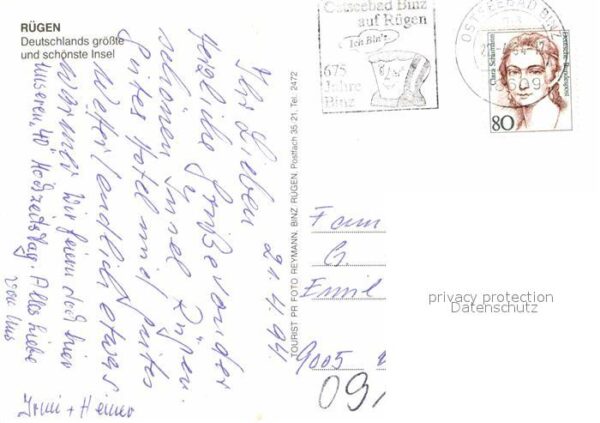 RÜGEN
Deutschlands größte
und schönste Insel
Ostseebad Binz
auf Rügen
Ich Bin's
675
Jahre
Binz
OSTSEEBAD BINZ
Clara Schumann
Deutsche Bundespost
80
21.4.94.
Ihr Lieben
Herzliche Grüße von der
schönen Insel Rügen.
Gutes Hotel und gutes
Wetter, endlich etwas
Wärmer. Wir feiern doch hier
unseren 40 Hochzeitstag. Alles Liebe
von uns
Irmi + Heiner
TOURIST PR FOTO REYMANN. BINZ RÜGEN. Postfach 35 21, Tel. 2472
Fam
G.
Emil
9005
09,
privacy protection
Datenschutz